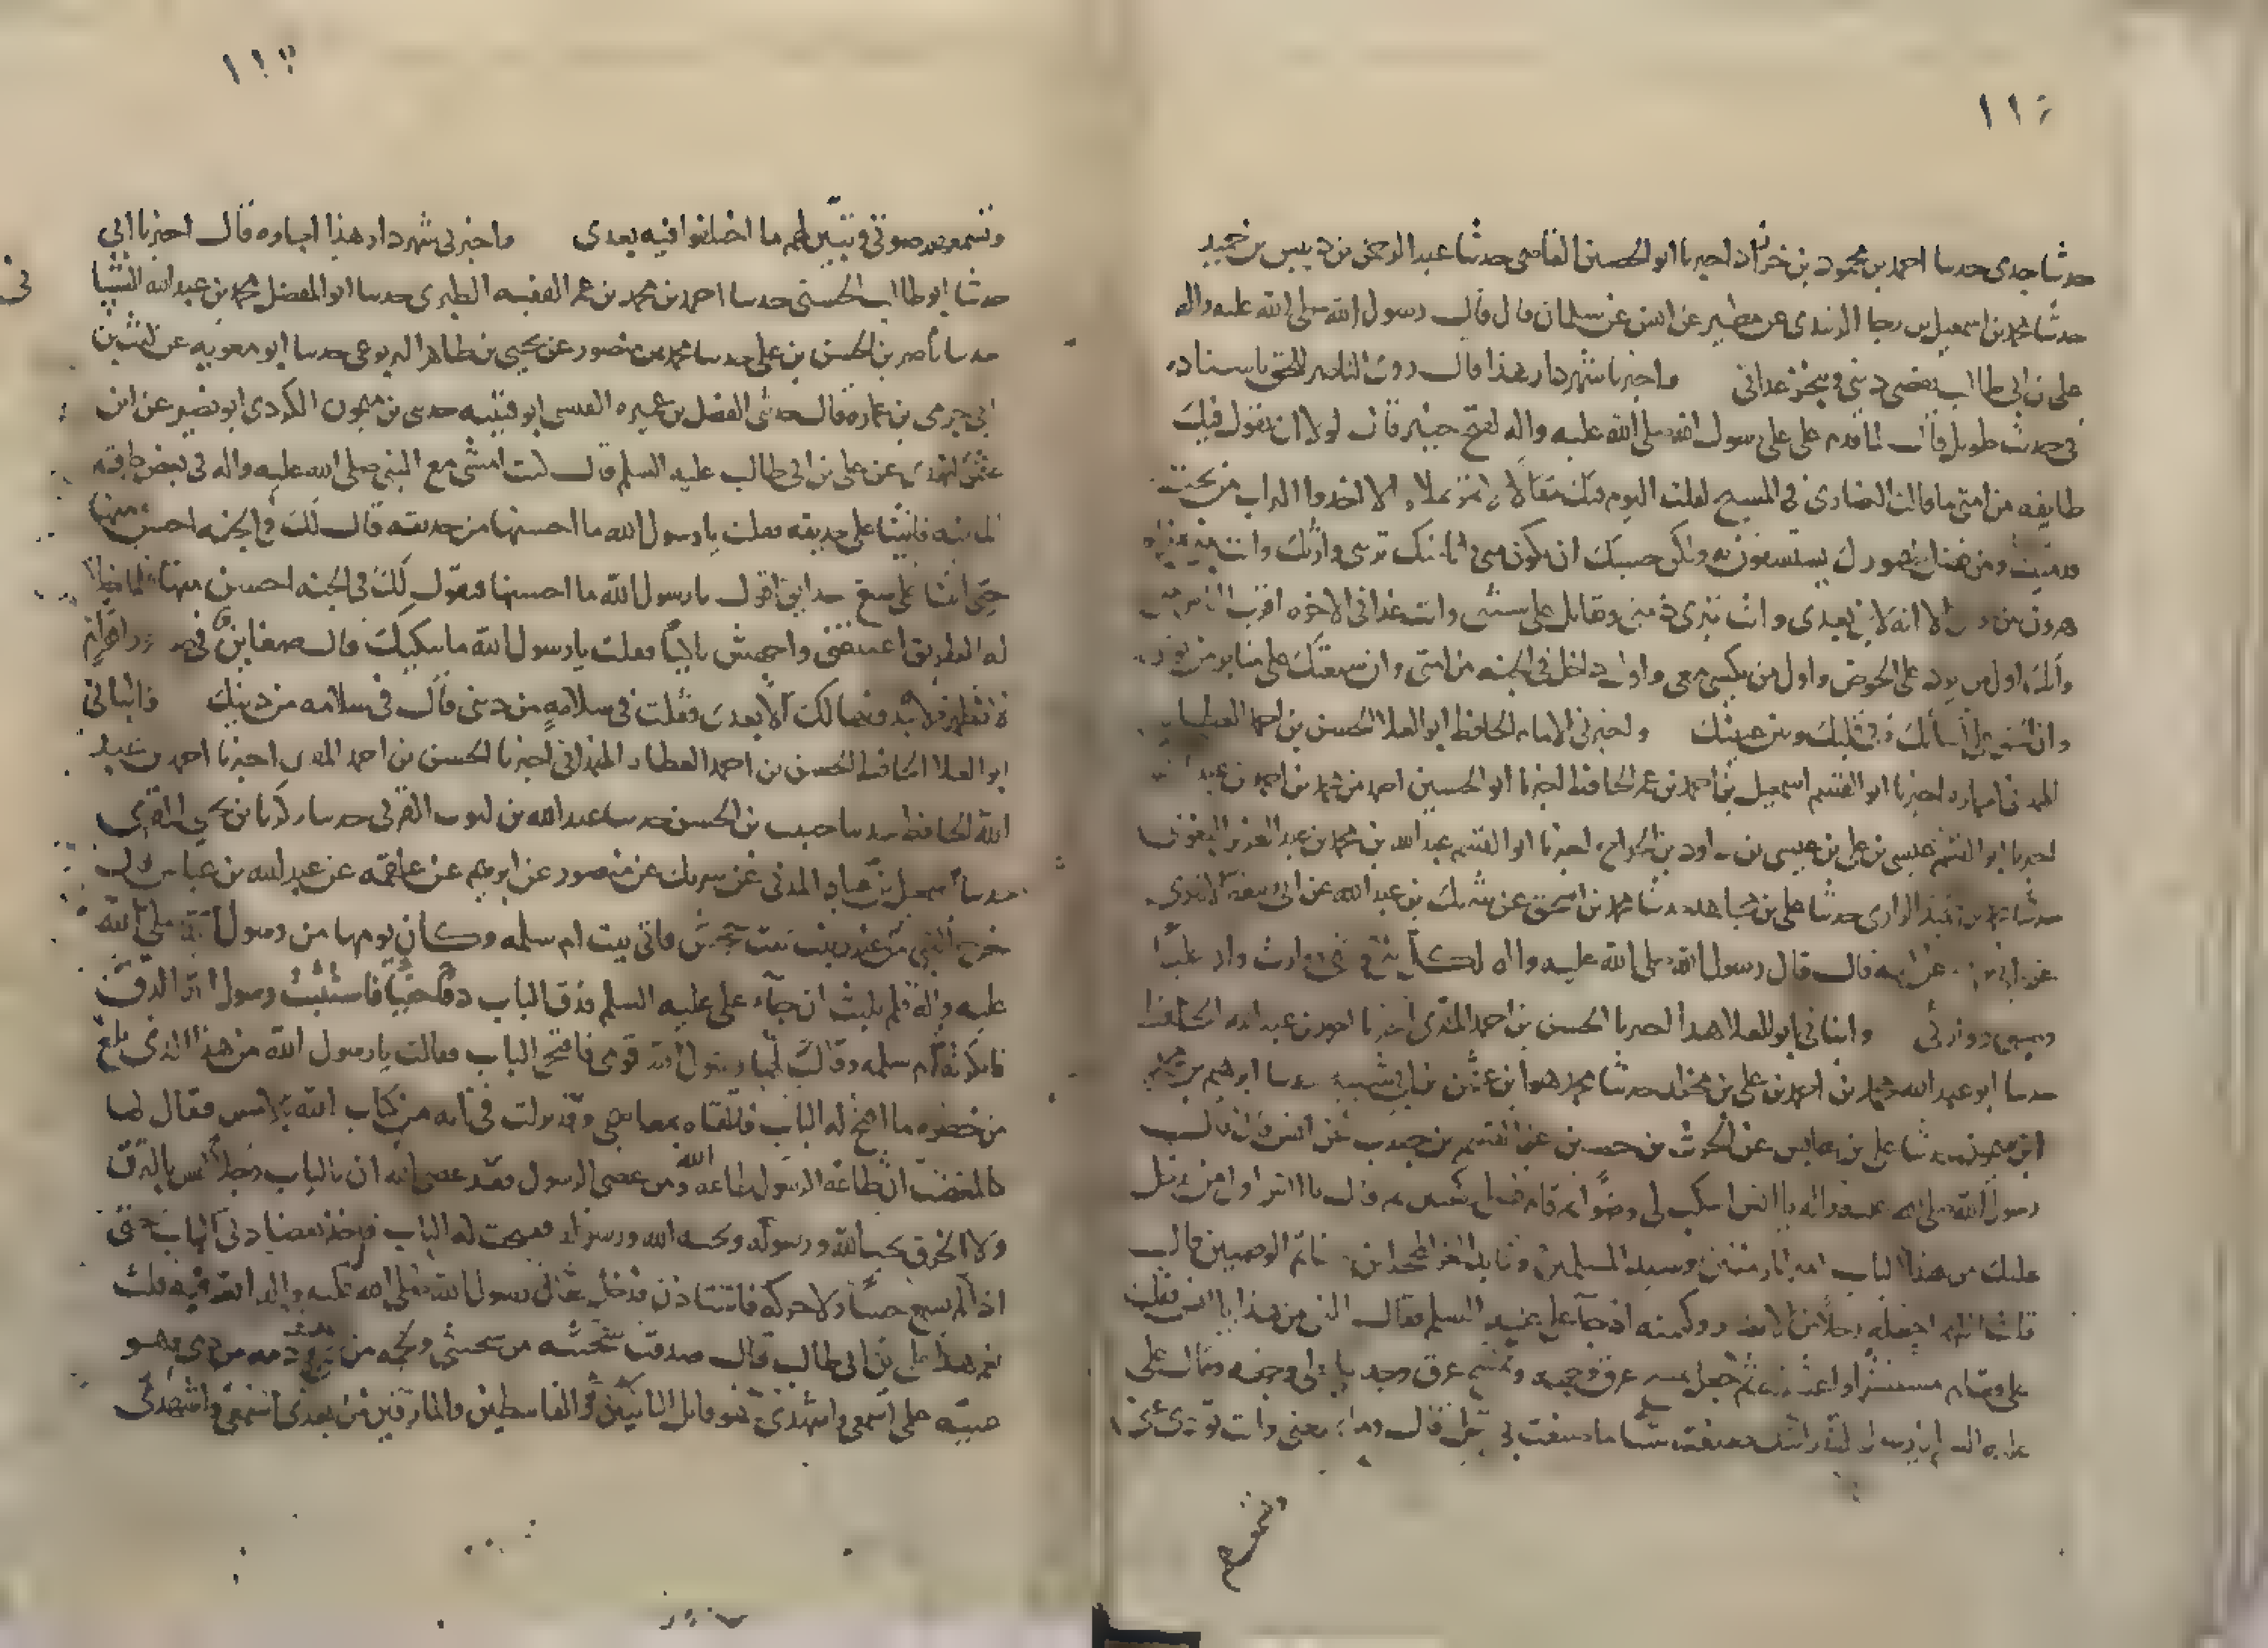 حدثنا جدى حدثنا احمد بن محمود بن خرزاد اخبرنا ابو الحسين القاضى حدثنا عبد الرحمن بن دبيس بن حميد
حدثنا محمد بن اسمعيل بن رجا الزبيدى عن مطير عن انس عن سلمان قال قال رسول الله صلى الله عليه واله
على بن ابى طالب يقضى دينى وينجز عداتى واخبرنا شهردار هذا قال روى الناصر للحق باسناده
فى حديث طويل قال لما قدم على على رسول الله صلى الله عليه واله لفتح خيبر قال لولا ان تقول فيك
طايفه من امتى ما قالت النصارى فى المسيح لقلت اليوم فيك مقالا لا تمر بملاء الا اخذوا التراب من تحت
قدميك ومن فضل طهورك يستشفون به ولكن حسبك ان تكون منى وانا منك ترثنى وارثك وانت منى بمنزله
هرون من الا انه لا نبى بعدى وانت تبرى ذمتى وتقاتل على سنتى وانت غدا فى الاخره اقرب الناس منى
وانك اول من يرد على الحوض واول من يكسى معى واول داخل فى الجنه من امتى وان شيعتك على منابر من نور
وان الحق على لسانك وفى قلبك وبين عينيك واخبرنى الامام الحافظ ابو العلا الحسن بن احمد العطار
الهمدانى اجازه اخبرنا ابو القسم اسمعيل بن احمد بن عمر الحافظ اخبرنا ابو الحسين احمد بن محمد بن احمد بن عبد الله
اخبرنا ابو القسم عيسى بن على بن عيسى بن داود بن الجراح اخبرنا ابو القسم عبد الله بن محمد بن عبد العزيز البغوى
حدثنا محمد بن حميد الرازى حدثنا على بن مجاهد حدثنا محمد بن اسحق عن شريك بن عبد الله عن ابى ربيعه الايادى
عن ابن عن ابيه قال قال رسول الله صلى الله عليه واله لكل نبى وصى ووارث وان عليا
وصيى ووارثى وانبانى ابو العلا هذا اخبرنا الحسن بن احمد المقرى اخبرنا احمد بن عبد الله الحافظ
حدثنا ابو عبد الله محمد بن احمد بن على بن مخلد حدثنا محمد هو ابن عثمن بن ابى شيبه حدثنا ابرهيم بن محمد
ابن ميمون حدثنا على بن عابس عن الحرث بن حصين عن القسم بن جندب عن انس قال قال
رسول الله صلى الله عليه واله يا انس اسكب لى وضوا ثم قام فصلى ركعتين ثم قال يا انس اول من يدخل
عليك من هذا الباب امير المومنين وسيد المسلمين وقايد الغر المحجلين وخاتم الوصيين قال
قلت اللهم اجعله رجلا من الانصار وكتمته اذ جآ على عليه السلم فقال من هذا يا انس فقلت
على فقام مستبشرا واعتنقه ثم جعل يمسح عرق وجهه ويمسح عرق وجه على بوجهه فقال على
عليه السلم يا رسول الله لقد رايتك صنعت شيا ما صنعت بى قبل قال وما يمنعنى وانت تودى عنى
وتسمعهم صوتى وتبين لهم ما اختلفوا فيه بعدى واخبرنى شهردار هذا اجازه قال اخبرنا ابى
حدثنا ابو طالب الحسنى حدثنا احمد بن محمد بن عمر الفقيه الطبرى حدثنا ابو المفضل محمد بن عبد الله الشيبا
حدثنا ناصر بن الحسن بن على حدثنا محمد بن منصور عن يحيى بن طاهر اليربوعى حدثنا ابو معويه عن ليث بن
ابى حرمى بن عماره قال حدثنى الفضل بن عميره القيسى ابو قتيبه حدثنى ميمون الكردى ابو نصير عن ابى
عثمن النهدى عن على بن ابى طالب عليه السلم قال كنت امشى مع النبى صلى الله عليه واله فى بعض طرق
المدينه فاتينا على حديقه فقلت يا رسول الله ما احسنها من حديقه قال لك فى الجنه احسن منها
حتى اتينا على سبع حدايق اقول يا رسول الله ما احسنها فيقول لك فى الجنه احسن منها فلما خلا
له الطريق اعتنقنى واجهش باكيا فقلت يا رسول الله ما يبكيك قال ضغاين فى صدور اقوام
لا تظهر لك الا بعدى فقلت فى سلامه من دينى قال فى سلامه من دينك وانبانى
ابو العلا الحافظ الحسن بن احمد العطار الهمدانى اخبرنا الحسن بن احمد المقرى اخبرنا احمد بن عبد
الله الحافظ حدثنا حبيب بن الحسن حدثنا عبد الله بن ايوب القربى حدثنا زكريا بن يحيى المنقرى
حدثنا اسمعيل بن عباد المدنى عن شريك عن منصور عن ابرهيم عن علقمه عن عبد الله بن عباس قال
خرج النبى من عند زينب بنت جحش فاتى بيت ام سلمه وكان يومها من رسول الله صلى الله
عليه واله فلم يلبث ان جآء على عليه السلم فدق الباب دقا خفيا فاستثبت رسول الله الدق
فانكرته ام سلمه وقال لها رسول الله قومى فافتحى الباب فقالت يا رسول الله من هذا الذى بلغ
من خطره ما افتح له الباب فاتلقاه بمعاصمى وقد نزلت فى ايه من كتاب الله بالامس فقال لها
كالمغضب ان طاعة الرسول طاعة الله ومن عصى الرسول فقد عصى الله ان بالباب رجلا ليس بالنزق
ولا الخرق يحب الله ورسوله ويحبه الله ورسوله ففتحت له الباب فاخذ بعضادتى الباب حتى
اذا لم يسمع حسا ولا حركه فاستاذن فدخل فقال رسول الله صلى الله عليه واله اتعرفيه قلت
نعم هذا على بن ابى طالب قال صدقت سحنته من سحنتى ولحمه من لحمى ودمه من دمى وهو
عيبة علمى اسمعى واشهدى وهو قاتل الناكثين والقاسطين والمارقين من بعدى اسمعى واشهدى